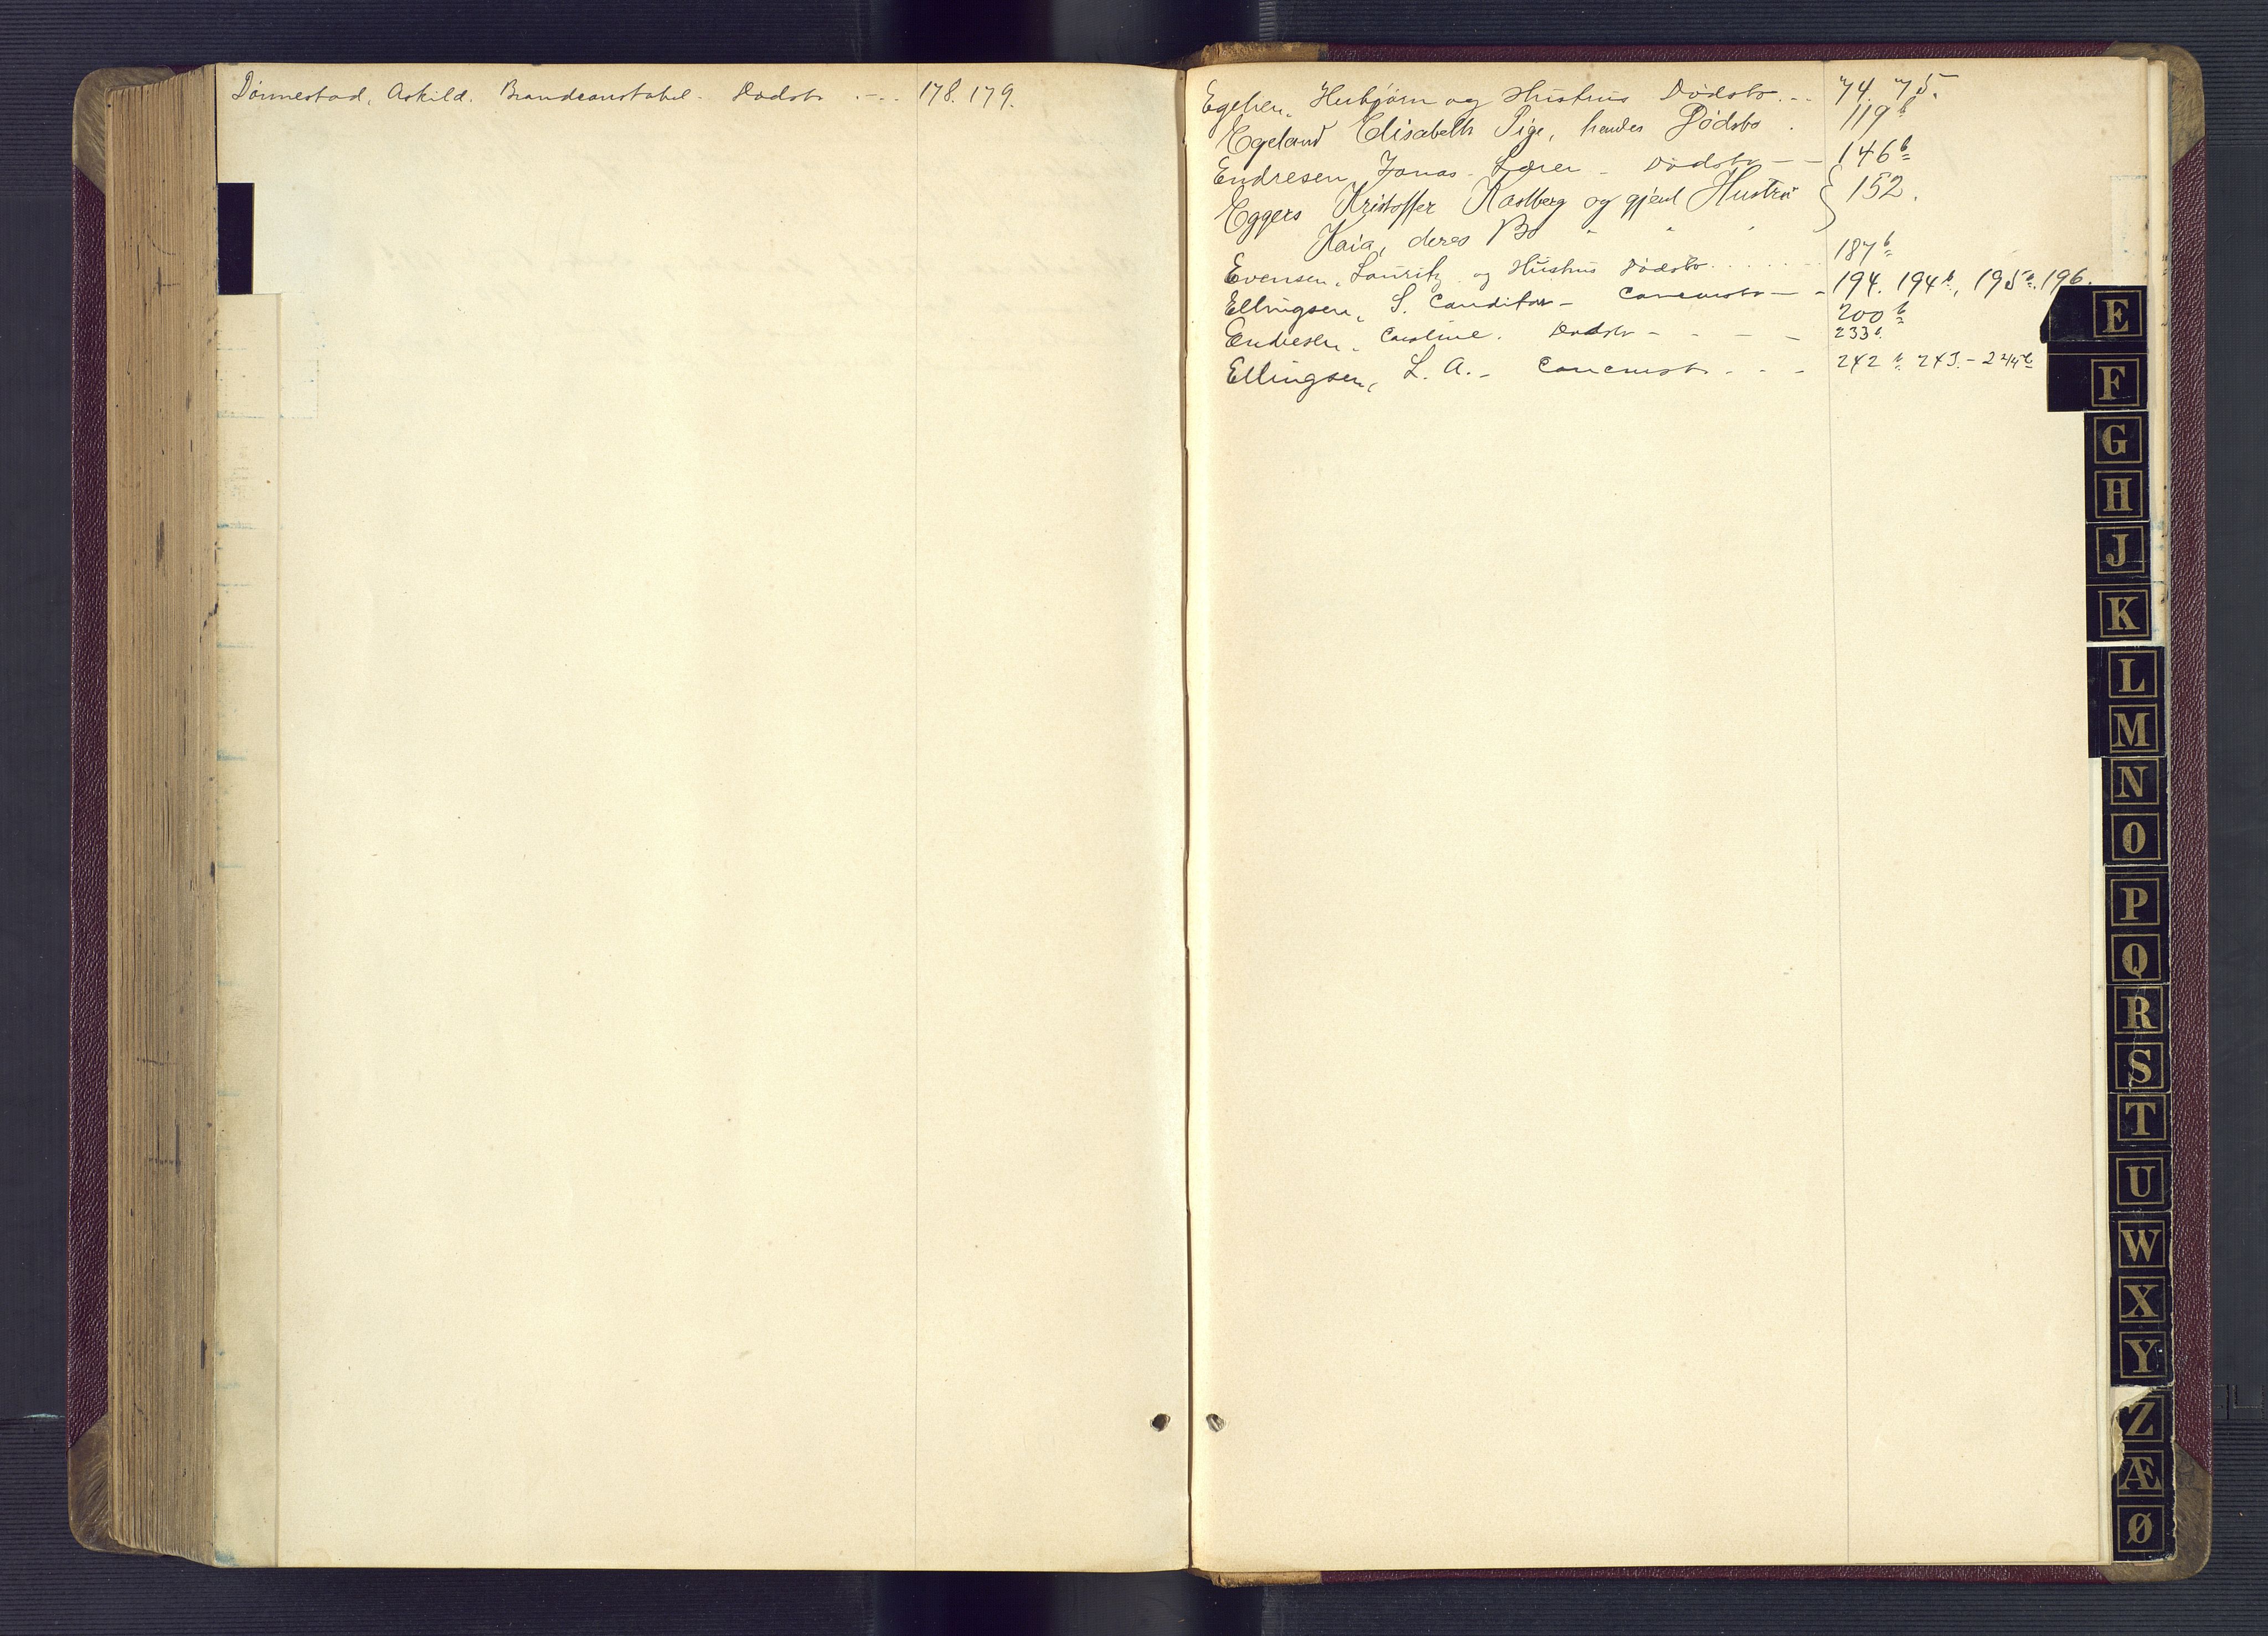 Dønnestad, Askild. Brandconstabel. Dødsbo . - . . 178. 179.
Egelien, Herbjørn og Hustrus Dødsbo. - . 74. 75.
Egeland Elisabeth Pige, hendes Dødsbo . 119b
Endresen Jonas. Lærer - Dødsbo - - 146b
Eggers Kristoffer Kastberg og gjenl Hustru } 152.
Kaia, deres Bo " " "
Evensen, Lauritz og Hustrus Dødsbo . . . . . . 187b
Ellingsen, S. Conditor - Concursbo - - 194. 194b, 195b. 196.
Endresen, Caroline. Dødsbo - - - - 200b
233b.
Ellingsen, L. A. - Concursbo - - - 242b. 243. - 244b
E
F
G
H
J
K
L
M
N
O
P
Q
R
S
T
U
W
X
Y
Z
Æ
Ø